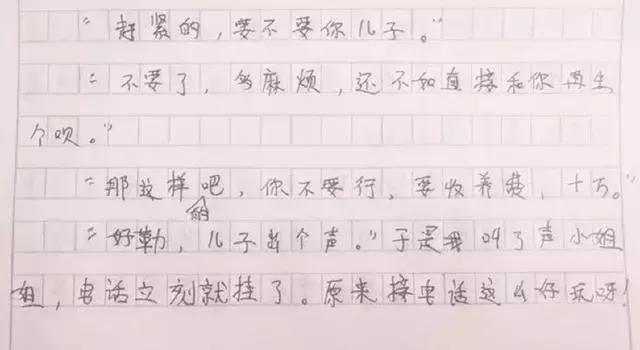 “赶紧的，要不要你儿子。”
“不要了，多麻烦，还不如直接和你再生
个呗。”
“那这样的吧，你不要行，要收养费，十万。”
“好勒，儿子出个声。”于是我叫了声小姐
姐，电话立刻就挂了。原来接电话这么好玩呀！